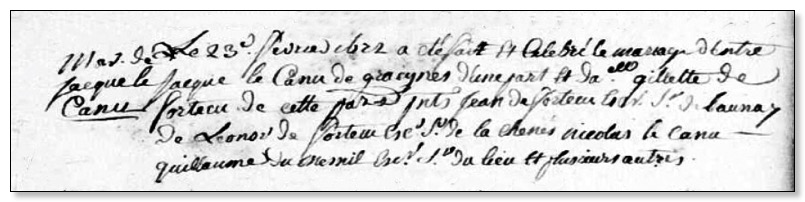 Mar. de Le 23e. février 1622 a été fait et Celebré le mariage d'entre
Jacque le Jacque le Canu de d'une part et dalle gillette de
Canu Sorteu de cette par. pnts Jean de Sorteu Escr. Sr. de launay
de Leonor de Sorteu escr. Sr. de la nicolas le Canu
guillaume du mesnil Escr. Sr. du lieu et plusieurs autres.